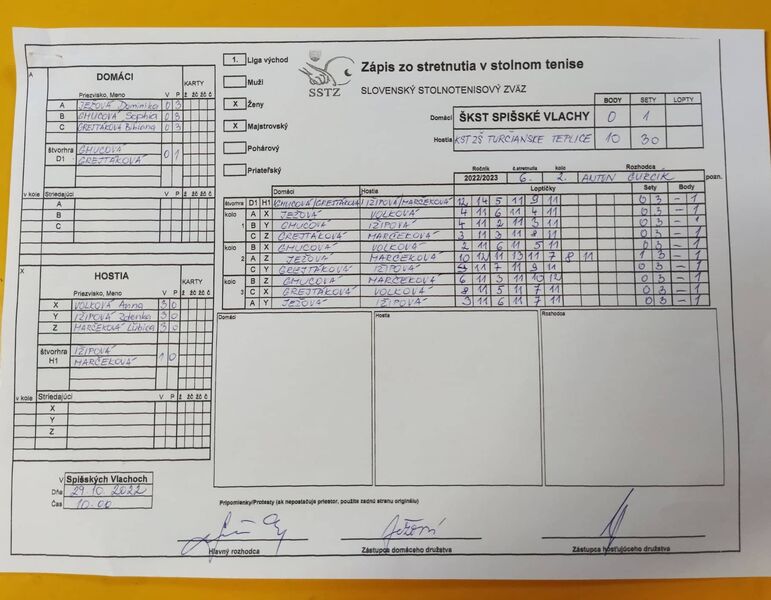 A DOMÁCI KARTY
Priezvisko, Meno V P ž žč žč č
A JEŽOVÁ Dominika 0 3
B GMUCOVÁ Sophia 0 3
C GREJTÁKOVÁ Bibiana 0 3
štvorhra D1 GMUCOVÁ 0 1
GREJTÁKOVÁ
v kole Striedajúci V P ž žč žč č
A
B
C
X HOSTIA KARTY
Priezvisko, Meno V P ž žč žč č
X VOLKOVÁ Anna 3 0
Y IŽIPOVÁ Zdenka 3 0
Z MARČEKOVÁ Ľubica 3 0
štvorhra H1 IŽIPOVÁ 1 0
MARČEKOVÁ
v kole Striedajúci V P ž žč žč č
X
Y
Z
V Spišských Vlachoch
Dňa 29.10.2022
Čas 10.00
1. Liga východ
Muži
X Ženy
X Majstrovský
Pohárový
Priateľský
SSTZ
Zápis zo stretnutia v stolnom tenise
SLOVENSKÝ STOLNOTENISOVÝ ZVÄZ
BODY SETY LOPTY
Domáci ŠKST SPIŠSKÉ VLACHY 0 1
Hostia KST ZŠ TURČIANSKE TEPLICE 10 30
Ročník č.stretnutia kolo Rozhodca
2022/2023 6. 2. ANTON pozn.
Domáci Hostia Loptičky Sety Body
štvorhra D1 H1 GMUCOVÁ/GREJTÁKOVÁ IŽIPOVÁ/MARČEKOVÁ 12 14 5 11 9 11 0 3 – 1
kolo 1 A X JEŽOVÁ VOLKOVÁ 4 11 6 11 4 11 0 3 – 1
B Y GMUCOVÁ IŽIPOVÁ 4 11 2 11 3 11 0 3 – 1
C Z GREJTÁKOVÁ MARČEKOVÁ 3 11 3 11 8 11 0 3 – 1
kolo 2 B X GMUCOVÁ VOLKOVÁ 2 11 6 11 5 11 0 3 – 1
A Z JEŽOVÁ MARČEKOVÁ 10 12 11 13 11 7 8 11 1 3 – 1
C Y GREJTÁKOVÁ IŽIPOVÁ 11 7 11 9 11 0 3 – 1
kolo 3 B Z GMUCOVÁ MARČEKOVÁ 6 11 3 11 10 12 0 3 – 1
C X GREJTÁKOVÁ VOLKOVÁ 8 11 5 11 7 11 0 3 – 1
A Y JEŽOVÁ IŽIPOVÁ 3 11 6 11 7 11 0 3 – 1
Domáci Hostia Rozhodca
Pripomienky/Protesty (ak nepostačuje priestor, použite zadnú stranu originálu)
Ježová
Hlavný rozhodca Zástupca domáceho družstva Zástupca hosťujúceho družstva